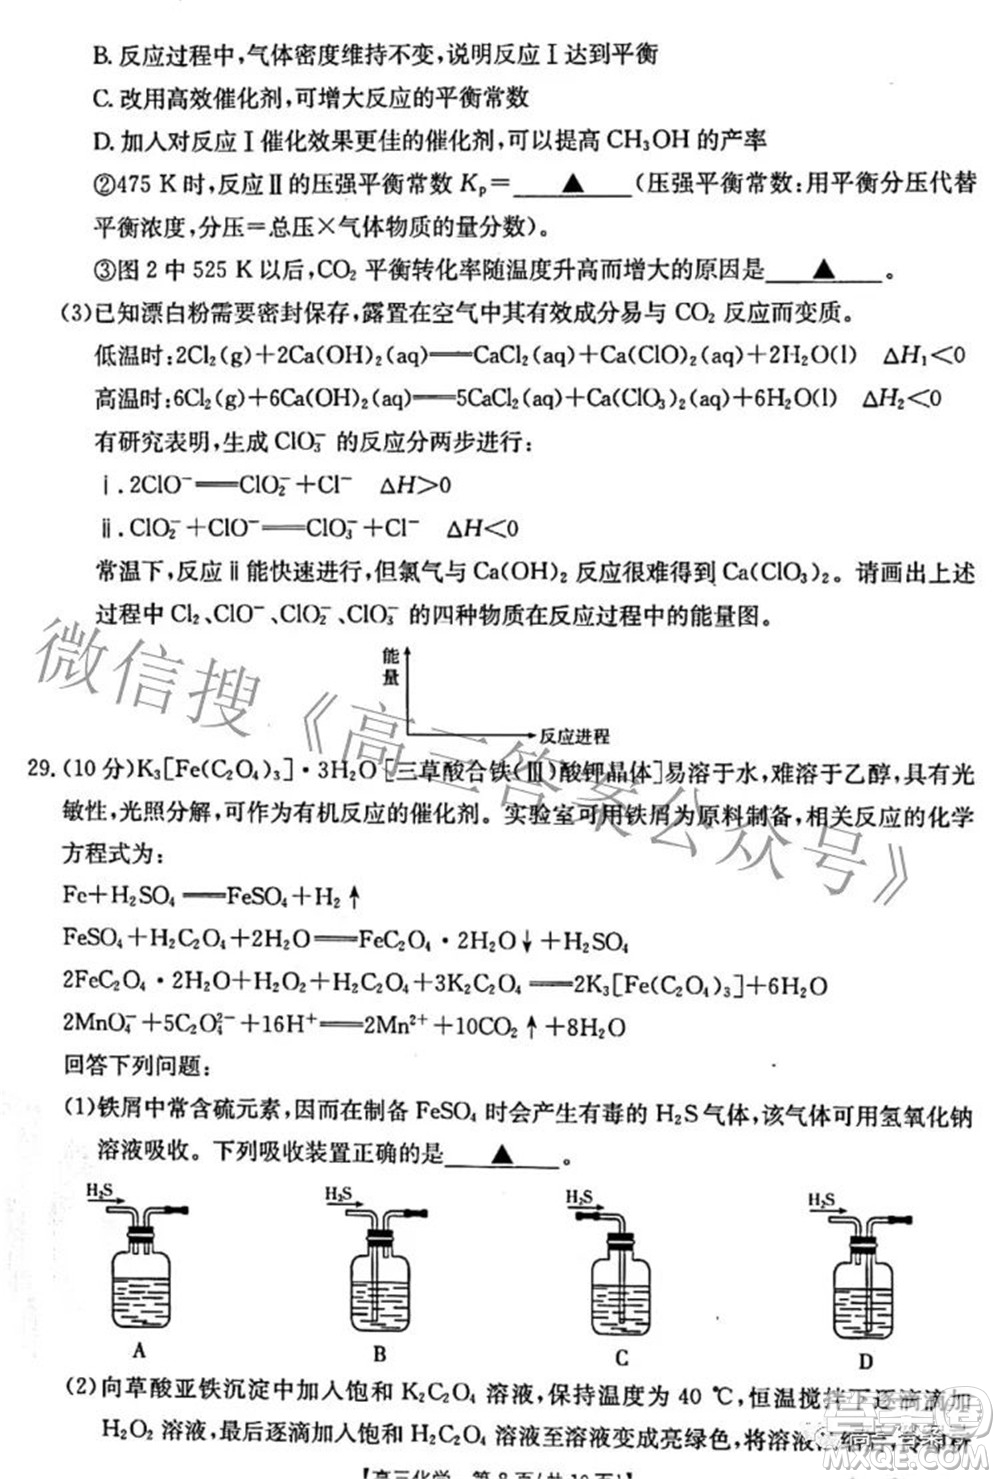 B. 反应过程中,气体密度维持不变,说明反应Ⅰ达到平衡
C. 改用高效催化剂,可增大反应的平衡常数
D. 加入对反应Ⅰ催化效果更佳的催化剂,可以提高 CH₃OH 的产率
②475 K 时,反应Ⅱ的压强平衡常数 Kₚ= ▲ (压强平衡常数:用平衡分压代替
平衡浓度,分压=总压×气体物质的量分数)。
③图 2 中 525 K 以后,CO₂ 平衡转化率随温度升高而增大的原因是 ▲ 。
(3)已知漂白粉需要密封保存,露置在空气中其有效成分易与 CO₂ 反应而变质。
低温时:2Cl₂(g)+2Ca(OH)₂(aq)══CaCl₂(aq)+Ca(ClO)₂(aq)+2H₂O(l) ΔH₁<0
高温时:6Cl₂(g)+6Ca(OH)₂(aq)══5CaCl₂(aq)+Ca(ClO₃)₂(aq)+6H₂O(l) ΔH₂<0
有研究表明,生成 ClO₃⁻ 的反应分两步进行:
ⅰ.2ClO⁻══ClO₂⁻+Cl⁻ ΔH>0
ⅱ.ClO₂⁻+ClO⁻══ClO₃⁻+Cl⁻ ΔH<0
常温下,反应ⅱ能快速进行,但氯气与 Ca(OH)₂ 反应很难得到 Ca(ClO₃)₂。请画出上述
过程中 Cl₂、ClO⁻、ClO₂⁻、ClO₃⁻ 的四种物质在反应过程中的能量图。
能量
反应进程
29.(10 分)K₃[Fe(C₂O₄)₃]·3H₂O [三草酸合铁(Ⅲ)酸钾晶体]易溶于水,难溶于乙醇,具有光
敏性,光照分解,可作为有机反应的催化剂。实验室可用铁屑为原料制备,相关反应的化学
方程式为:
Fe+H₂SO₄══FeSO₄+H₂↑
FeSO₄+H₂C₂O₄+2H₂O══FeC₂O₄·2H₂O↓+H₂SO₄
2FeC₂O₄·2H₂O+H₂O₂+H₂C₂O₄+3K₂C₂O₄══2K₃[Fe(C₂O₄)₃]+6H₂O
2MnO₄⁻+5C₂O₄²⁻+16H⁺══2Mn²⁺+10CO₂↑+8H₂O
回答下列问题:
(1)铁屑中常含硫元素,因而在制备 FeSO₄ 时会产生有毒的 H₂S 气体,该气体可用氢氧化钠
溶液吸收。下列吸收装置正确的是 ▲ 。
H₂S H₂S H₂S H₂S
A B C D
(2)向草酸亚铁沉淀中加入饱和 K₂C₂O₄ 溶液,保持温度为 40 ℃,恒温搅拌下逐滴滴加
H₂O₂ 溶液,最后逐滴加入饱和 H₂C₂O₄ 溶液至溶液变成亮绿色,将溶液浓缩后,冷却析
【高三化学 第 8 页(共 10 页)】
微信搜《高三答案公众号》